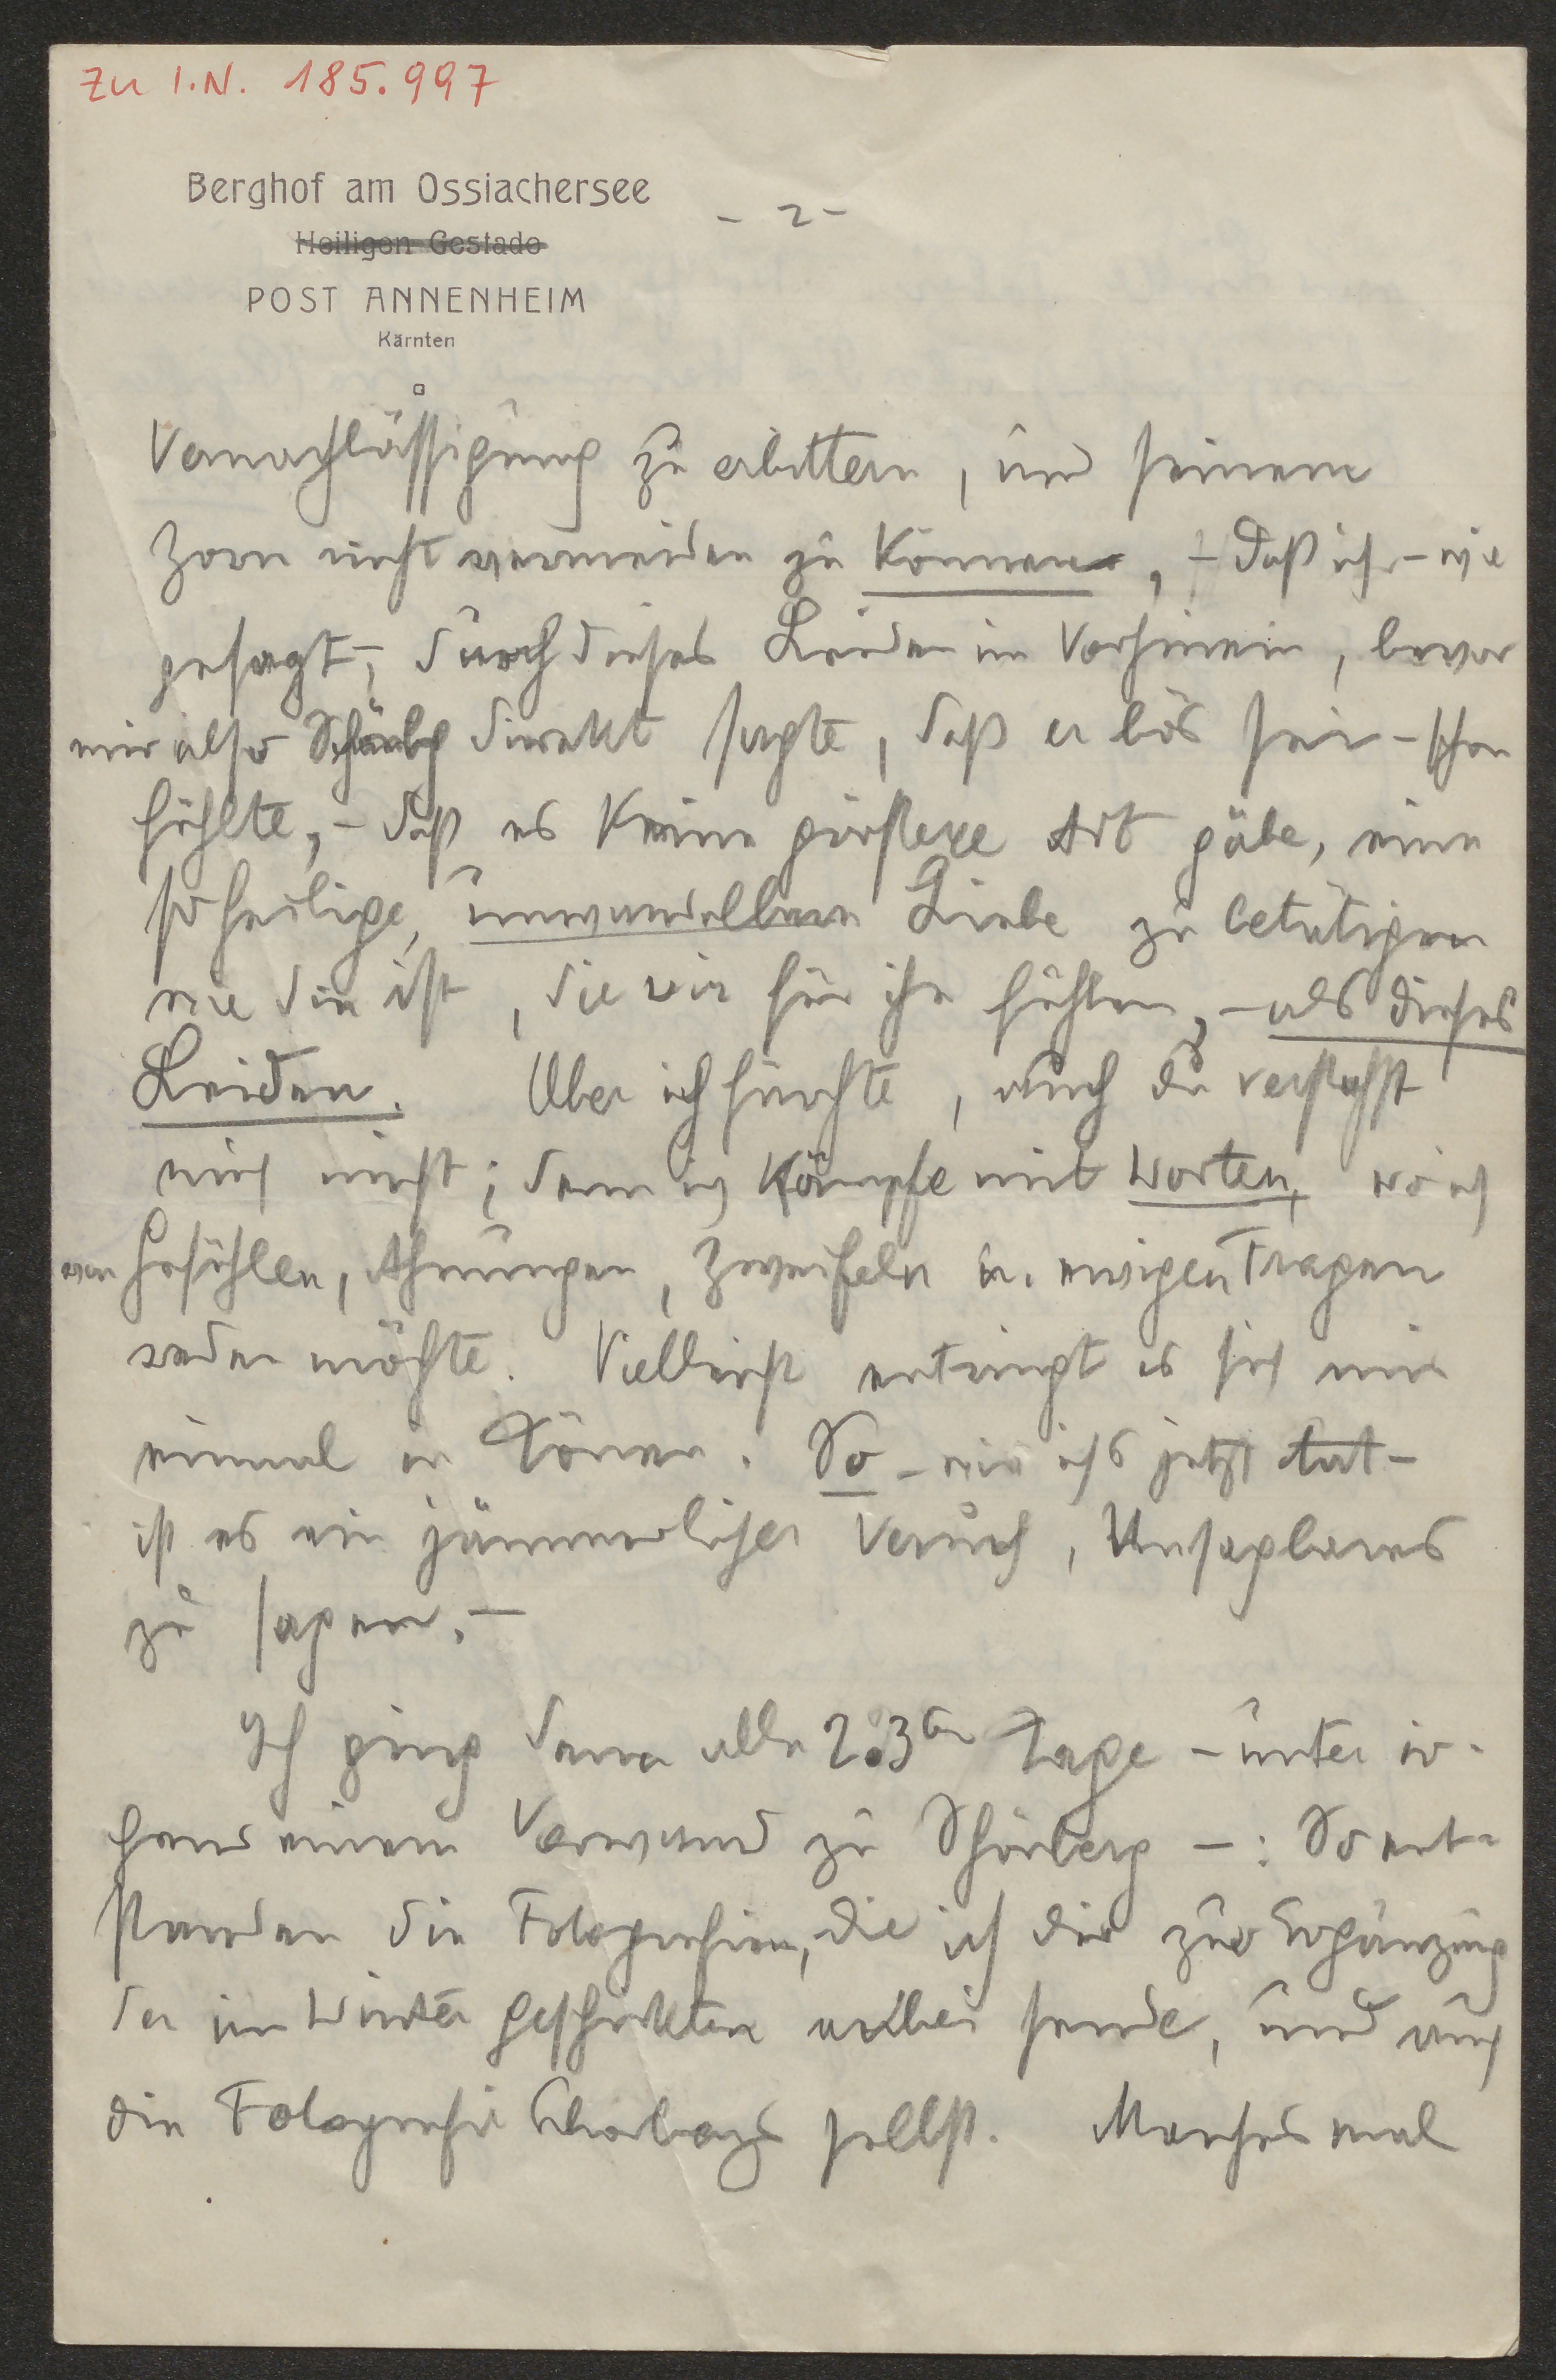 Zu I.N. 185.997
Berghof am Ossiachersee
- 2 -
Heiligen Gestade
POST ANNENHEIM
Kärnten
Vernachlässigung zu erbittern, und seinem
Zorn nicht vermeiden zu können, – daß ich – wie
gesagt –, durch dieses Leiden im Vorhinein, bevor
mir also Schönbg direkt sagte, daß er bös sei – schon
fühlte, – daß es keine größere Art gäbe, eine
so heilige, unwandelbare Liebe zu betätigen
wie die ist, die wir für ihn fühlen, – als dieses
Leiden. Aber ich fürchte, auch du verstehst
mich nicht; denn ich kämpfe mit Worten, wo ich
von Gefühlen, Ahnungen, Zweifeln u. ewigen Fragen
reden möchte. Vielleicht entringt es sich mir
einmal in Tönen. So – wie ichs jetzt tat –
ist es ein jämmerlicher Versuch, Unsagbares
zu sagen. –
Ich ging dann alle 2. 3ten Tage – unter ir-
gend einem Vorwand zu Schönberg – : So ent-
standen die Fotografien, die ich dir zur Ergänzung
der im Winter geschickten anbei sende, und auch
die Fotografie Schönbergs selbst. Manches mal